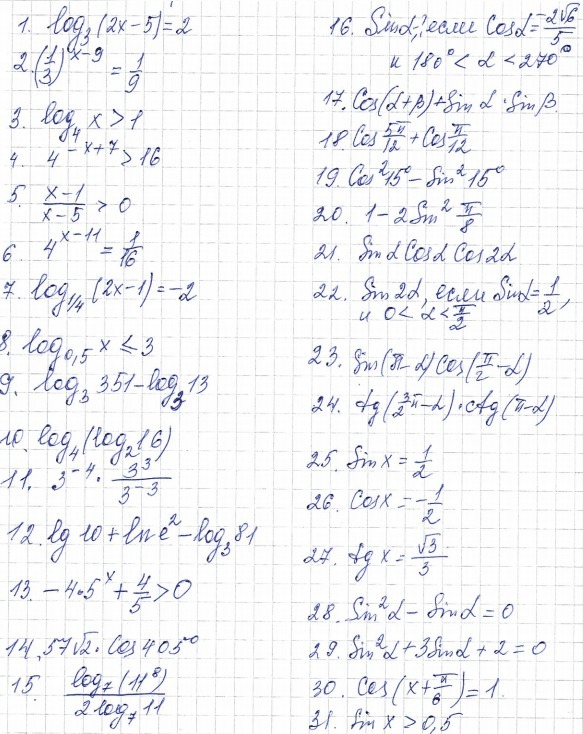 1. log₃(2x-5)=2
2. (1/3)^(x-9) = 1/9
3. log₄ x > 1
4. 4^(-x+7) > 16
5. (x-1)/(x-5) > 0
6. 4^(x-11) = 1/16
7. log_(1/4) (2x-1) = -2
8. log_(0,5) x ≤ 3
9. log₃ 351 - log₃ 13
10. log₄(log₂16)
11. 3⁻⁴ · 3³/3⁻³
12. lg 10 + ln e² - log₃ 81
13. -4·5^x + 4/5 > 0
14. 57√2 · cos 405°
15. log₇(11⁸)/(2log₇ 11)
16. Sinα, если Cosα = -2√6/5
и 180° < α < 270°
17. Cos(α+β)+Sin α · Sin β
18. Cos 5π/12 + Cos π/12
19. Cos²15° - Sin²15°
20. 1 - 2Sin² π/8
21. Sinα Cosα Cos2α
22. Sin2α, если Sinα = 1/2,
и 0 < α < π/2
23. Sin(π-α)Cos(π/2-α)
24. tg(3/2π-α)·ctg(π-α)
25. Sin x = 1/2
26. Cosx = -1/2
27. tg x = √3/3
28. Sin²α - Sinα = 0
29. Sin²α + 3Sinα + 2 = 0
30. Cos(x+π/6) = 1.
31. Sin x > 0,5